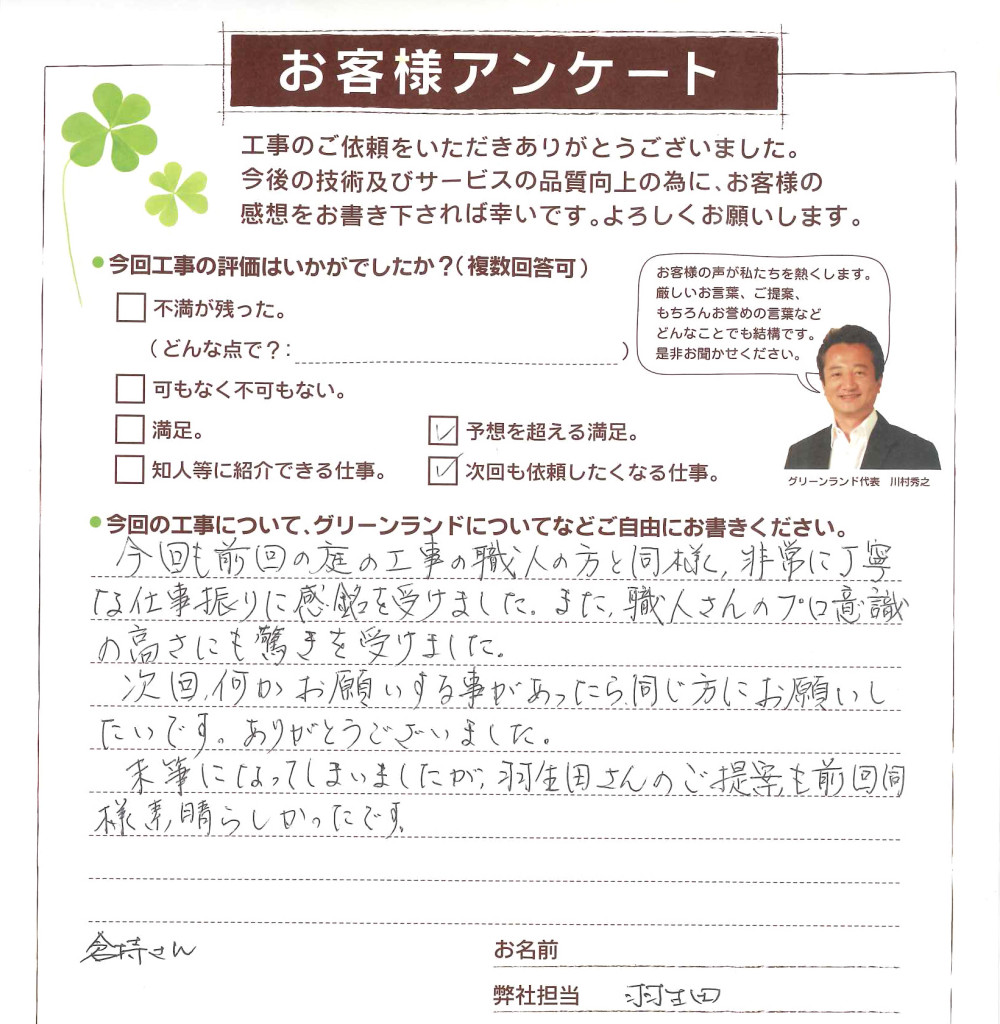 お客様アンケート
工事のご依頼をいただきありがとうございました。
今後の技術及びサービスの品質向上の為に、お客様の
感想をお書き下されば幸いです。よろしくお願いします。
●今回工事の評価はいかがでしたか？（複数回答可）
不満が残った。
（どんな点で？：　　　　）
可もなく不可もない。
満足。
予想を超える満足。
知人等に紹介できる仕事。
次回も依頼したくなる仕事。
お客様の声が私たちを熱くします。
厳しいお言葉、ご提案、
もちろんお誉めの言葉など
どんなことでも結構です。
是非お聞かせください。
グリーンランド代表　川村秀之
●今回の工事について、グリーンランドについてなどご自由にお書きください。
今回も前回の庭の工事の職人の方と同様に、非常に丁寧
な仕事振りに感銘を受けました。また、職人さんのプロ意識
の高さにも驚きを受けました。
次回、何かお願いする事があったら、同じ方にお願いし
たいです。ありがとうございました。
末筆になってしまいましたが、羽生田さんのご提案も前回同
様素晴らしかったです。
倉持さん
お名前
弊社担当　羽生田